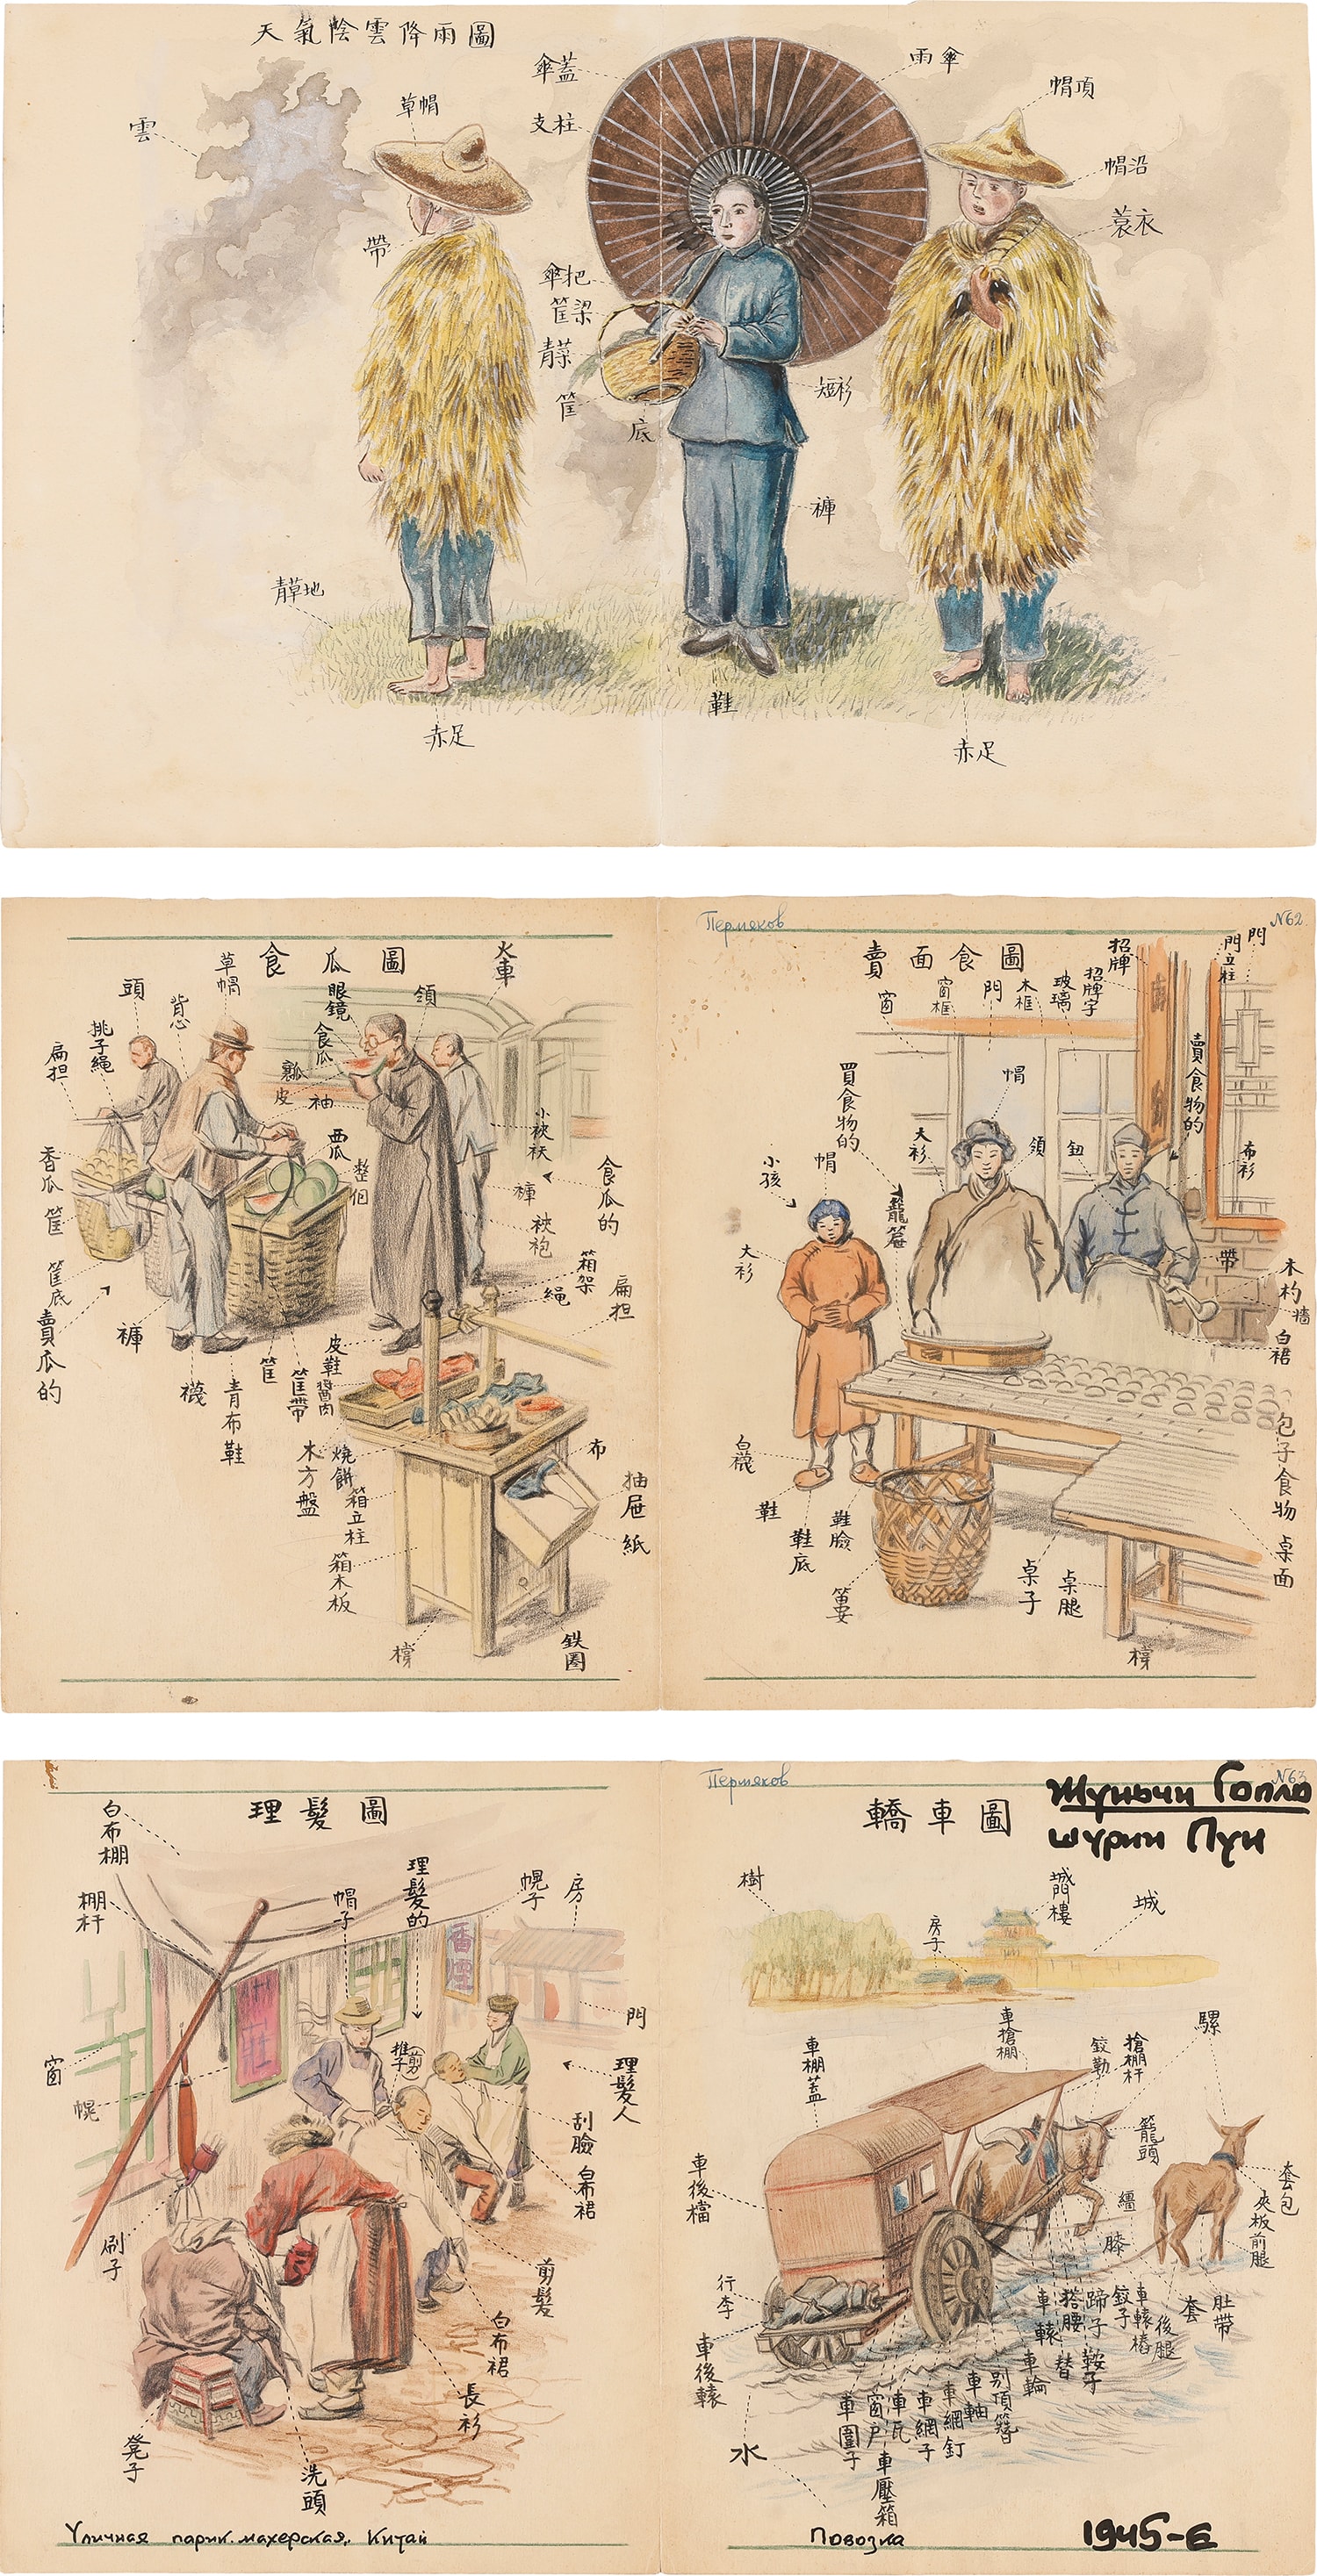 天氣陰雲降雨圖
雲
草帽
帶
青草地
赤足
傘蓋
支柱
傘把
筐梁
青菜
筐
底
雨傘
短衫
褲
鞋
帽頂
帽沿
蓑衣
赤足
食瓜圖
火車
頭
背心
草帽
眼鏡
領
扁担
挑子繩
食瓜
瓤
皮
袖
西瓜
整個
香瓜
筐
筐底
賣瓜的
褲
襪
青布鞋
筐
筐帶
皮鞋
醬肉
小裌袄
褲
裌袍
食瓜的
箱架
繩
扁担
木方盤
燒餅
箱立柱
箱木板
布
抽屉
紙
鉄圈
Пермяков
N62
賣面食圖
窗
窗框
門
木框
玻璃
招牌字
招牌
門立柱
門
賣食物的
買食物的
帽
大衫
領
鈕
布衫
小孩
帽
大衫
帶
木杓
墻
白裙
白襪
鞋
鞋底
鞋臉
包子食物
桌面
桌子
桌腿
理髮圖
白布棚
棚杆
帽子
理髮的
幌子
房
香煙
門
窗
幌
推子(剪)
理髮人
刮臉
白布裙
刷子
剪髮
白布裙
長衫
凳子
洗頭
Уличная парикмахерская, Китай
Пермяков
N63
轎車圖
樹
城門樓
城
房子
車棚蓋
車槍棚
鉸勒
搶棚杆
騾
籠頭
車後檔
韁
套包
夾板
前腿
膝
行李
車後轅
車轅
搭腰
蹄子
鉸子
車轅樁
後腿
套
肚帶
替
鞍子
車輪
水
車圍子
窗户
車瓦
車壓箱
車網子
車網釘
車軸
别頂簪
Повозка
1945-Е